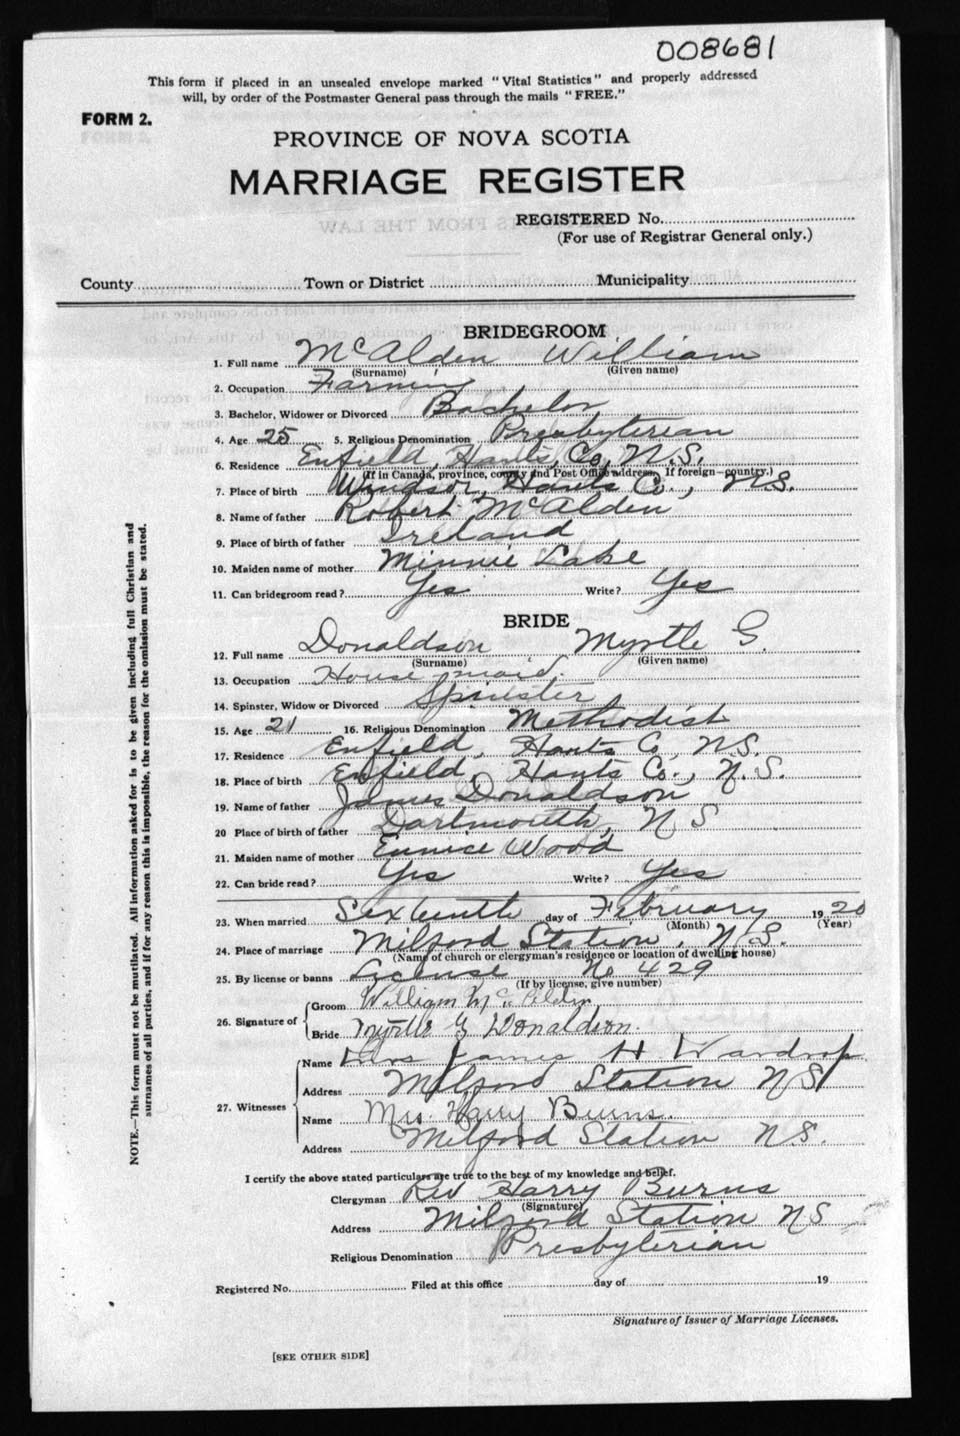 008681
This form if placed in an unsealed envelope marked "Vital Statistics" and properly addressed
will, by order of the Postmaster General pass through the mails "FREE."
FORM 2.
PROVINCE OF NOVA SCOTIA
MARRIAGE REGISTER
REGISTERED No.
(For use of Registrar General only.)
County Town or District Municipality
BRIDEGROOM
1. Full name McAlden William
(Surname) (Given name)
2. Occupation Farming
3. Bachelor, Widower or Divorced Bachelor
4. Age 25 5. Religious Denomination Presbyterian
6. Residence Enfield, Hants, Co, N.S.
(If in Canada, province, county and Post Office address. If foreign—country.)
7. Place of birth Windsor, Hants Co., N.S.
8. Name of father Robert McAlden
9. Place of birth of father Ireland
10. Maiden name of mother Minnie Lake
11. Can bridegroom read? Yes Write? Yes
BRIDE
12. Full name Donaldson Myrtle G.
(Surname) (Given name)
13. Occupation House maid.
14. Spinster, Widow or Divorced Spinster
15. Age 21 16. Religious Denomination Methodist
17. Residence Enfield, Hants Co, N.S.
18. Place of birth Enfield, Hants Co., N.S.
19. Name of father James Donaldson
20 Place of birth of father Dartmouth, N S
21. Maiden name of mother Eunice Wood
22. Can bride read? Yes Write? Yes
23. When married Sixteenth day of February 1920
(Month) (Year)
24. Place of marriage Milford Station, N.S.
(Name of church or clergyman's residence or location of dwelling house)
25. By license or banns License No 429
(If by license, give number)
26. Signature of Groom William McAlden
Bride Myrtle G Donaldson.
27. Witnesses Name Mrs James H Wardrop
Address Milford Station NS
Name Mrs. Harry Burns.
Address Milford Station N.S.
I certify the above stated particulars are true to the best of my knowledge and belief.
Clergyman Rev Harry Burns
(Signature)
Address Milford Station NS
Religious Denomination Presbyterian
Registered No. Filed at this office day of 19
Signature of Issuer of Marriage Licenses.
[SEE OTHER SIDE]
NOTE.—This form must not be mutilated. All information asked for is to be given including full Christian and
surnames of all parties, and if for any reason this is impossible, the reason for the omission must be stated.